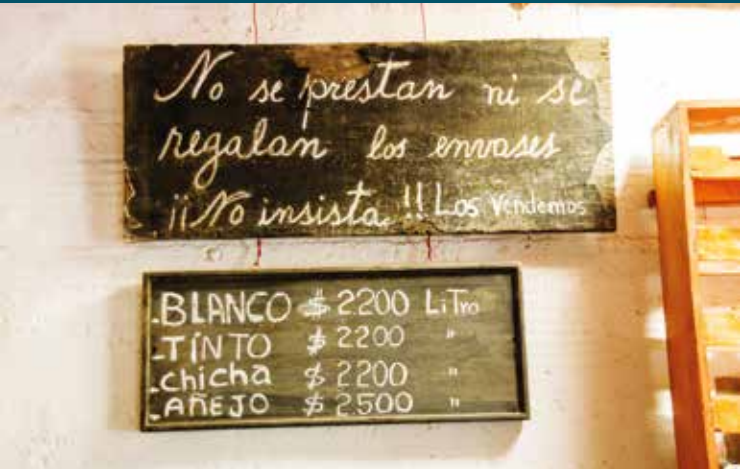 No se prestan ni se
regalan los envases
¡¡No insista!! Los Vendemos
-BLANCO $ 2.200 LiTro
-TINTO $ 2200 "
-chicha $ 2200 "
-AÑEJO $ 2.500 "